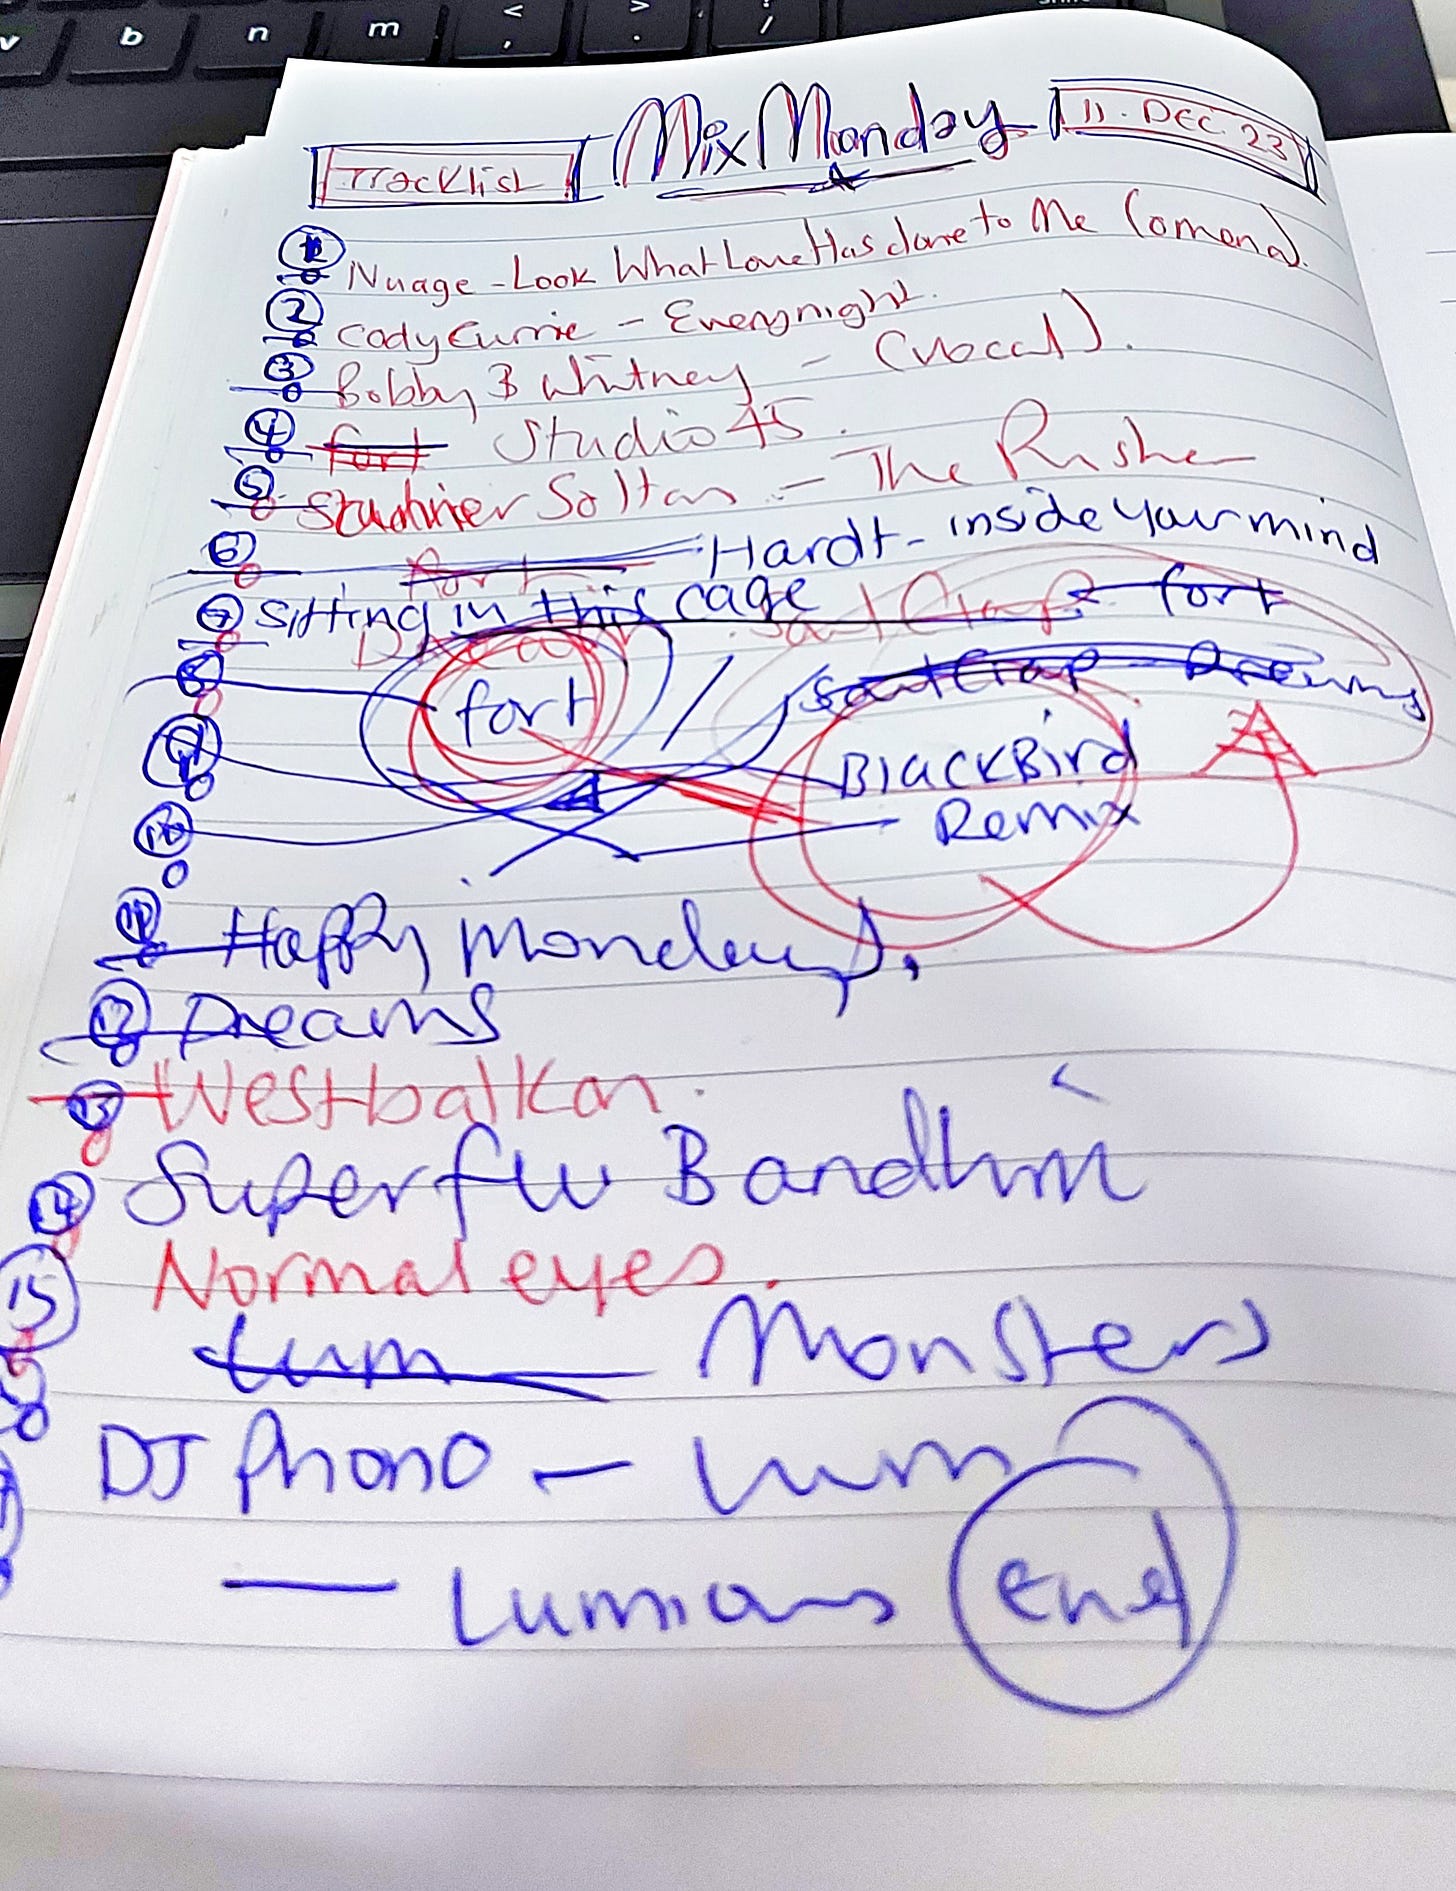 v b n m < , > . / ;
Tracklist Mix Monday 11. DEC. 23
1 Nuage - Look What Love Has done to Me (omena).
2 Cody Currie - Everynight.
3 Bobby B Whitney - (vocal).
4 fort Studio 45.
5 Soltan - The Pusher
6 fort Hardt - inside your mind
7 Sitting in this cage fort
8 fort / Sant Crap Dreams
9 BlackBird
10 Remix
11 Happy Mondays.
12 Dreams
13 Westbalkan.
14 Superflu Bandlimi
15 Normal eyes.
lum Monsters
DJ Phono - lum
- Lumians end